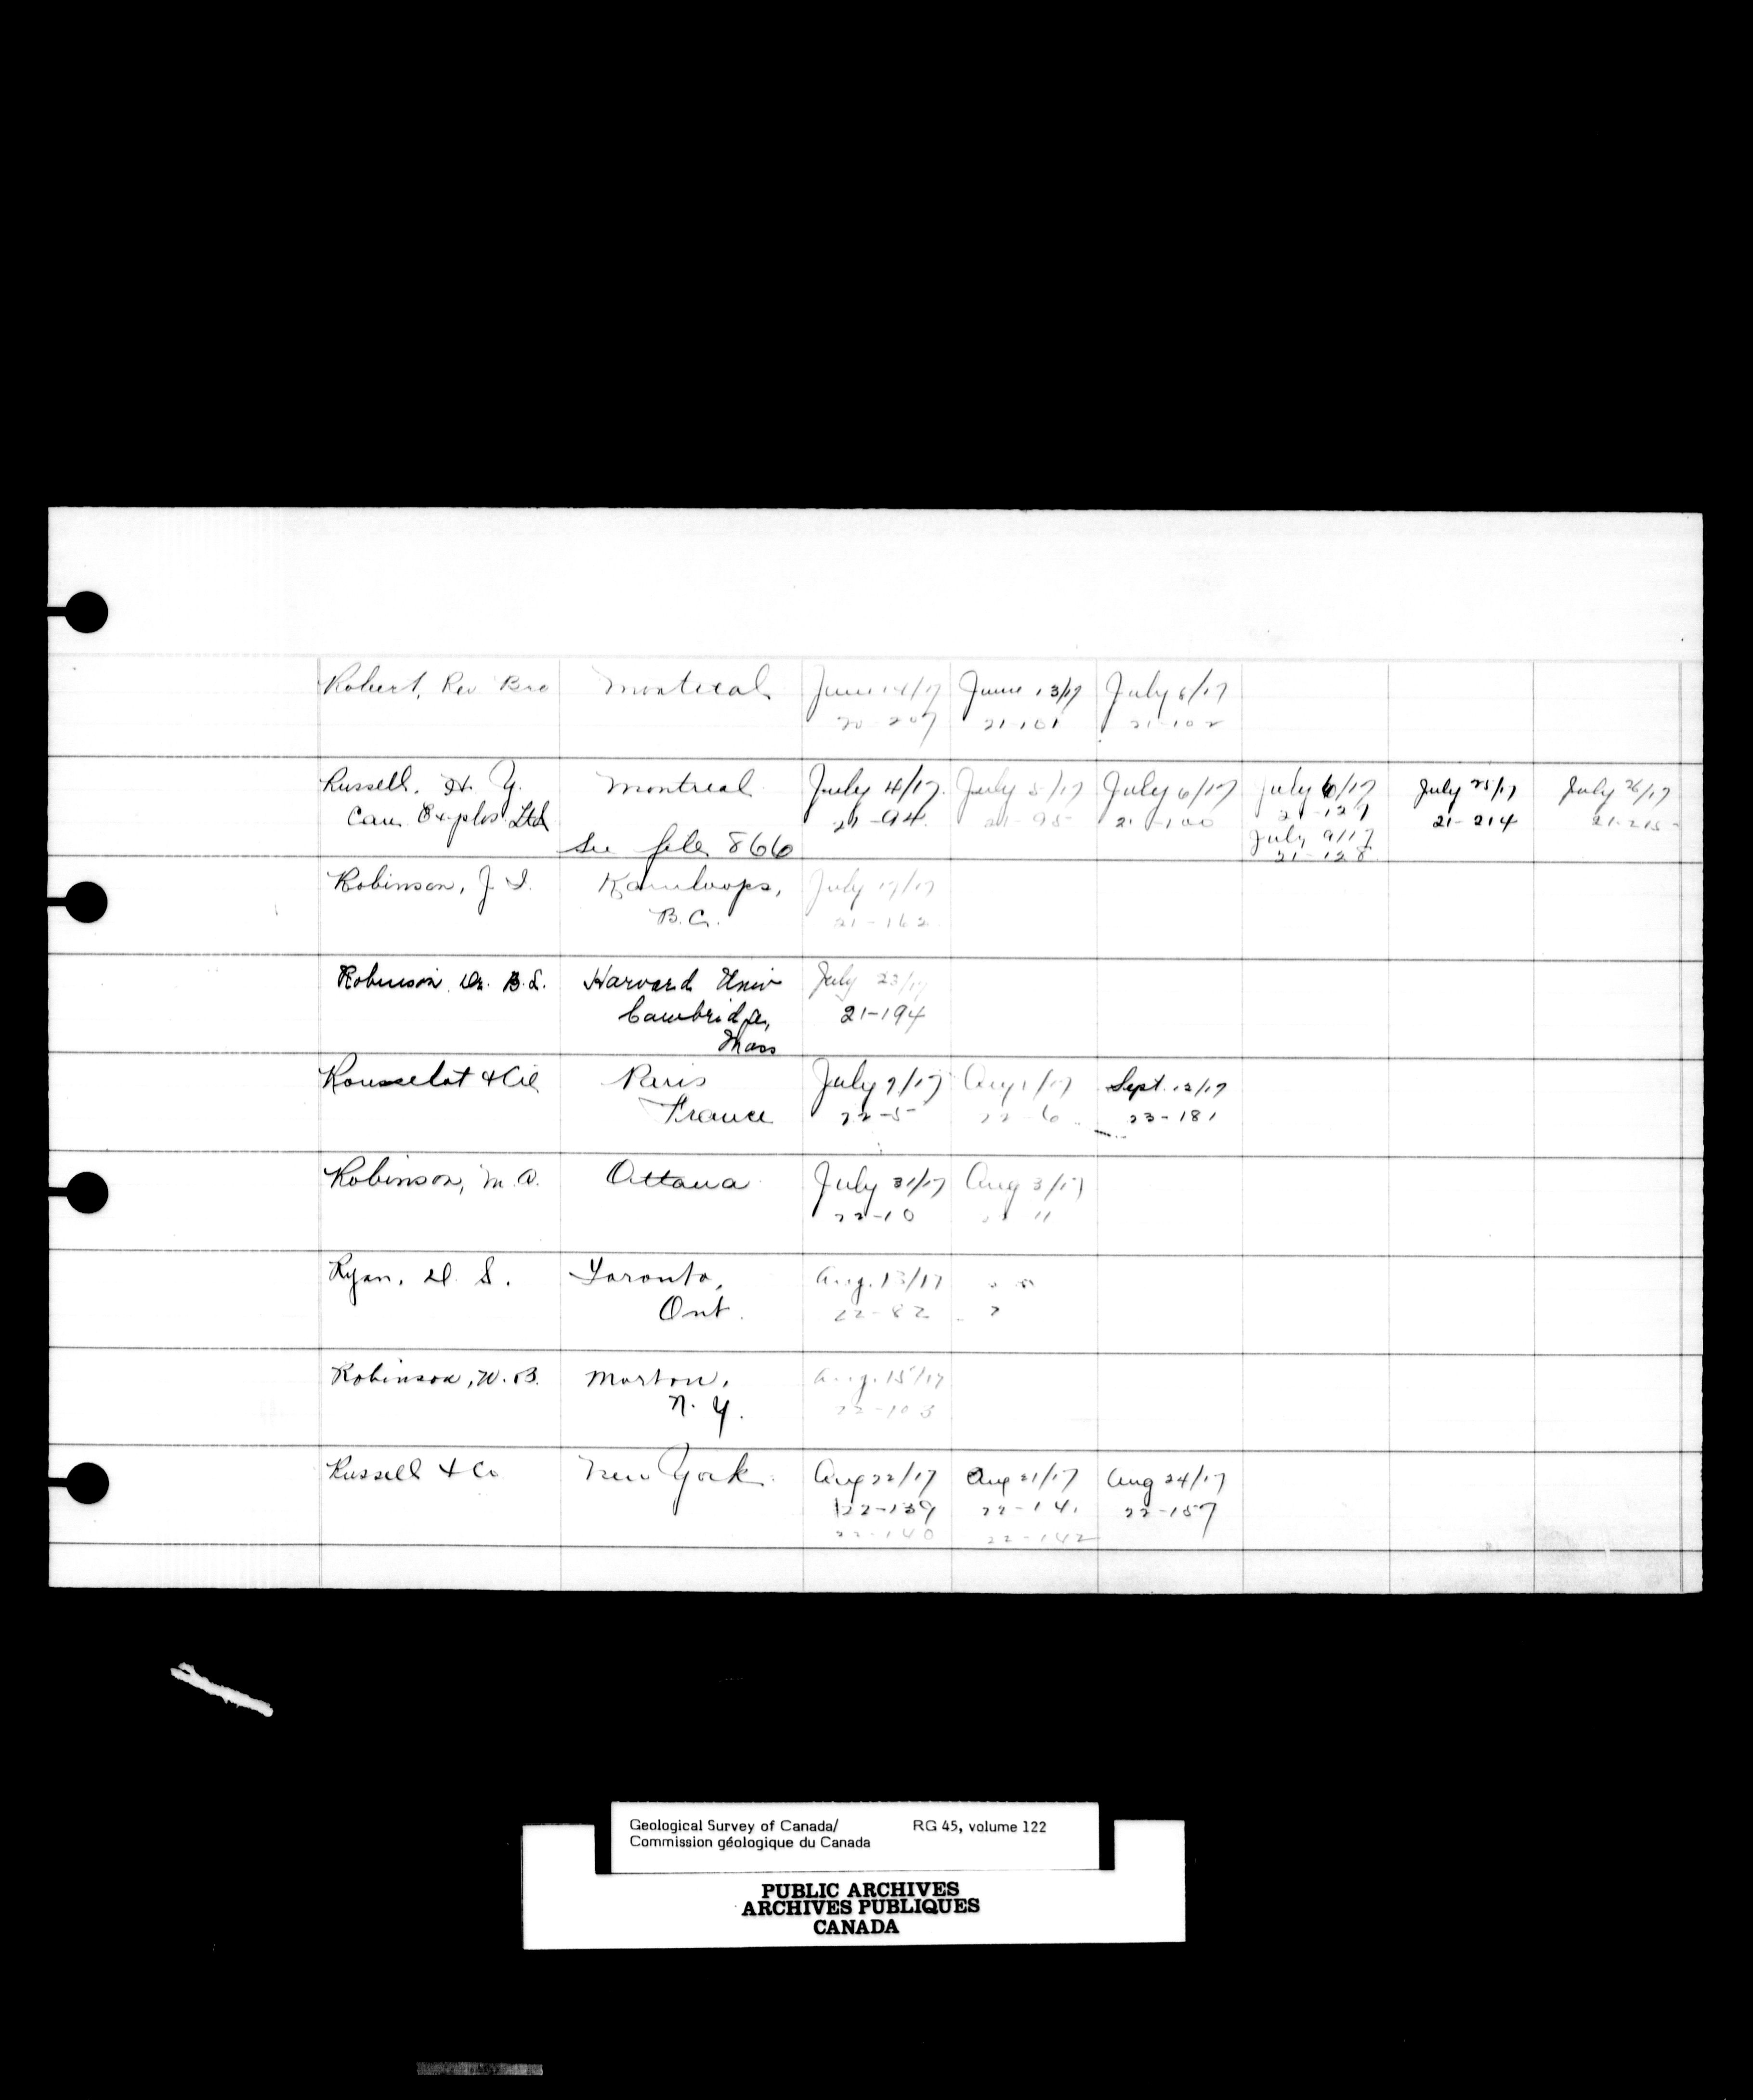 Robert, Rev Bro Montreal June 14/17 June 13/17 July 6/17
20-207 21-101 21-102
Russell, H. Y. Montreal July 4/17 July 5/17 July 6/17 July 6/17 July 25/17 July 26/17
Can. Explos. Ltd 21-94 21-95 21-100 21-127 21-214 21-215
See file 866 July 9/17
21-128
Robinson, J. I. Kamloops, July 17/17
B.C. 21-162
Robinson Dr. B.L. Harvard Univ July 23/17
Cambridge, 21-194
Mass
Rousselot & Cie Paris July 7/17 Aug 1/17 Sept. 12/17
France 22-5 22-6 23-181
Robinson, M. A. Ottawa July 31/17 Aug 3/17
22-10 11
Ryan, D. S. Toronto, Aug. 13/17
Ont. 22-82
Robinson, W. B. Morton, Aug. 15/17
N. Y. 22-103
Russell & Co New York Aug 22/17 Aug 21/17 Aug 24/17
22-139 22-141 22-157
22-140 22-142
Geological Survey of Canada/ RG 45, volume 122
Commission géologique du Canada
PUBLIC ARCHIVES
ARCHIVES PUBLIQUES
CANADA